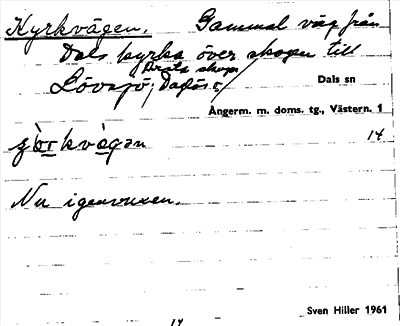 Kyrkvägen. Gammal väg från
Dals kyrka över skogen till
Lövsjö,
Dals sn
Ångerm. m. doms. tg., Västern. 1
14
Nu igenvuxen.
Sven Hiller 1961
14